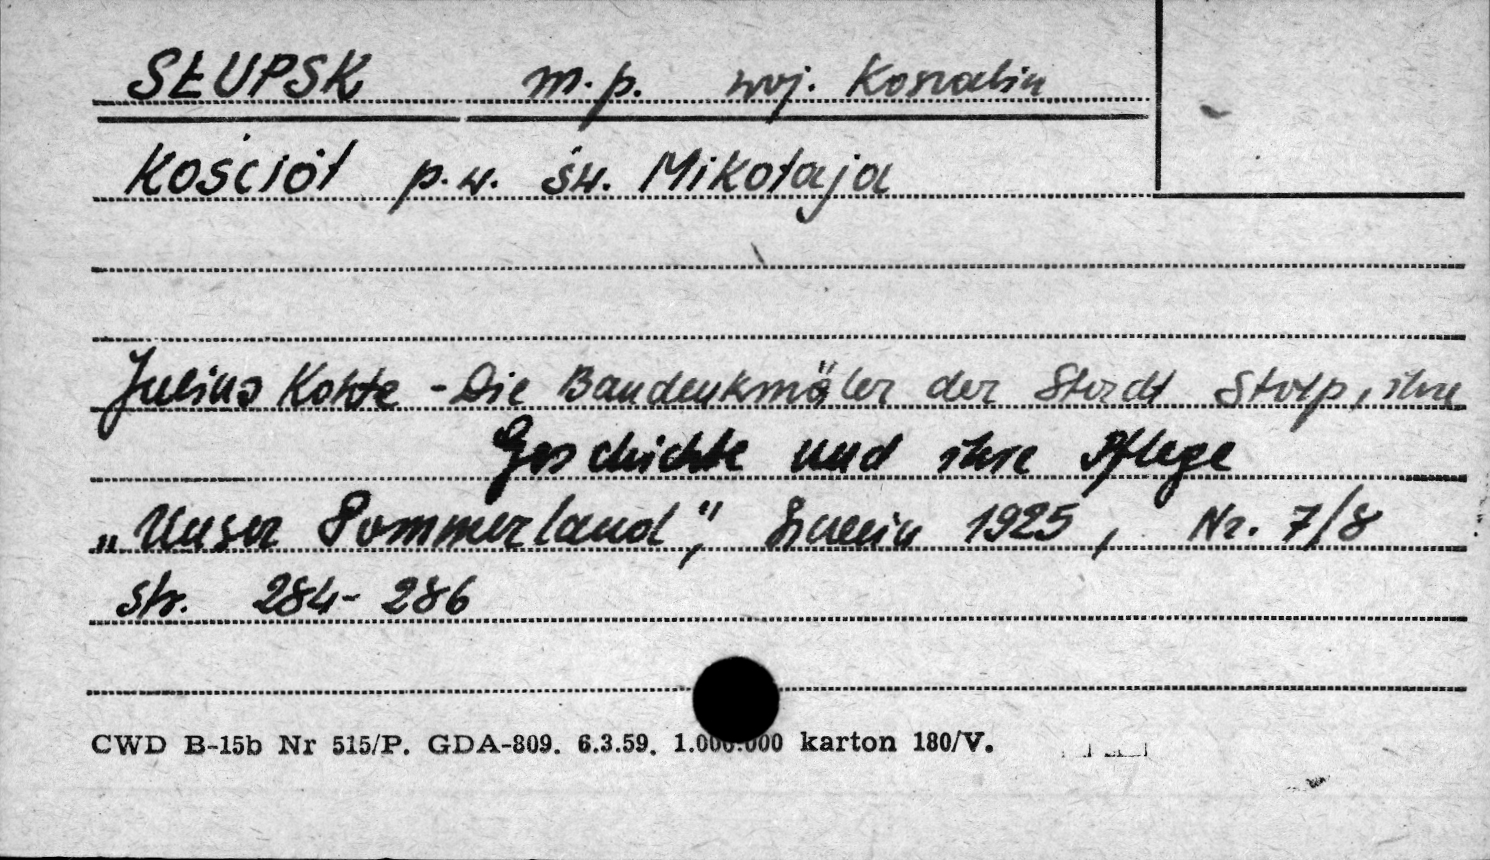 SŁUPSK m.p. woj. Koszalin
Kościół p.w. św. Mikołaja
Julius Kohte - Die Baudenkmäler der Stadt Stolp, ihre
Geschichte und ihre Pflege
„Unser Pommerland", 1925, Nr. 7/8
str. 284-286
CWD B-15b Nr 515/P. GDA-809. 6.3.59. 1.000.000 karton 180/V.